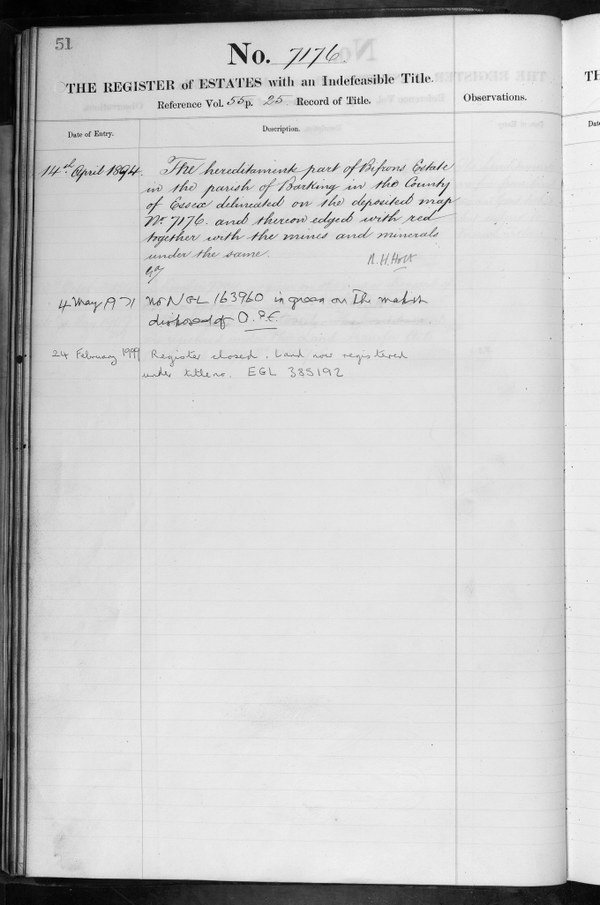 51
No. 7176.
THE REGISTER of ESTATES with an Indefeasible Title.
Reference Vol. 55 p. 25 Record of Title.
Observations.
Date of Entry.
Description.
14th April 1894.
The hereditaments part of Bifrons Estate
in the parish of Barking in the County
of Essex delineated on the deposited map
No 7176. and thereon edged with red
together with the mines and minerals
under the same.
R. H. Holt
4 May 1971
No NGL 163960 in green on the
disposed of
24 February 1999
Register closed. Land now registered
under title no. EGL 385192
TH
Date